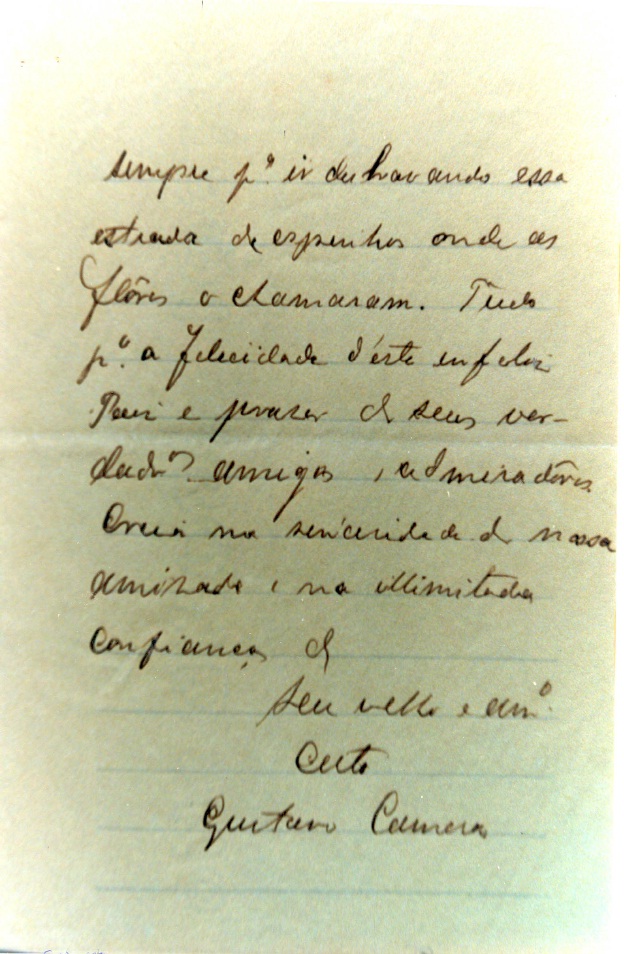 sempre p.ª ir deshravando essa
estrada de espinhos onde as
flôres o chamaram. Tudo
p.ª a felicidade d'éste infeliz
Paiz e prazer de seus ver-
dadr.ᵒˢ amigos e admiradôres.
Creia na sinceridade de nossa
amizade e na illimitada
confiança de
Seu velho e am.º
Certo
Gustavo Camara